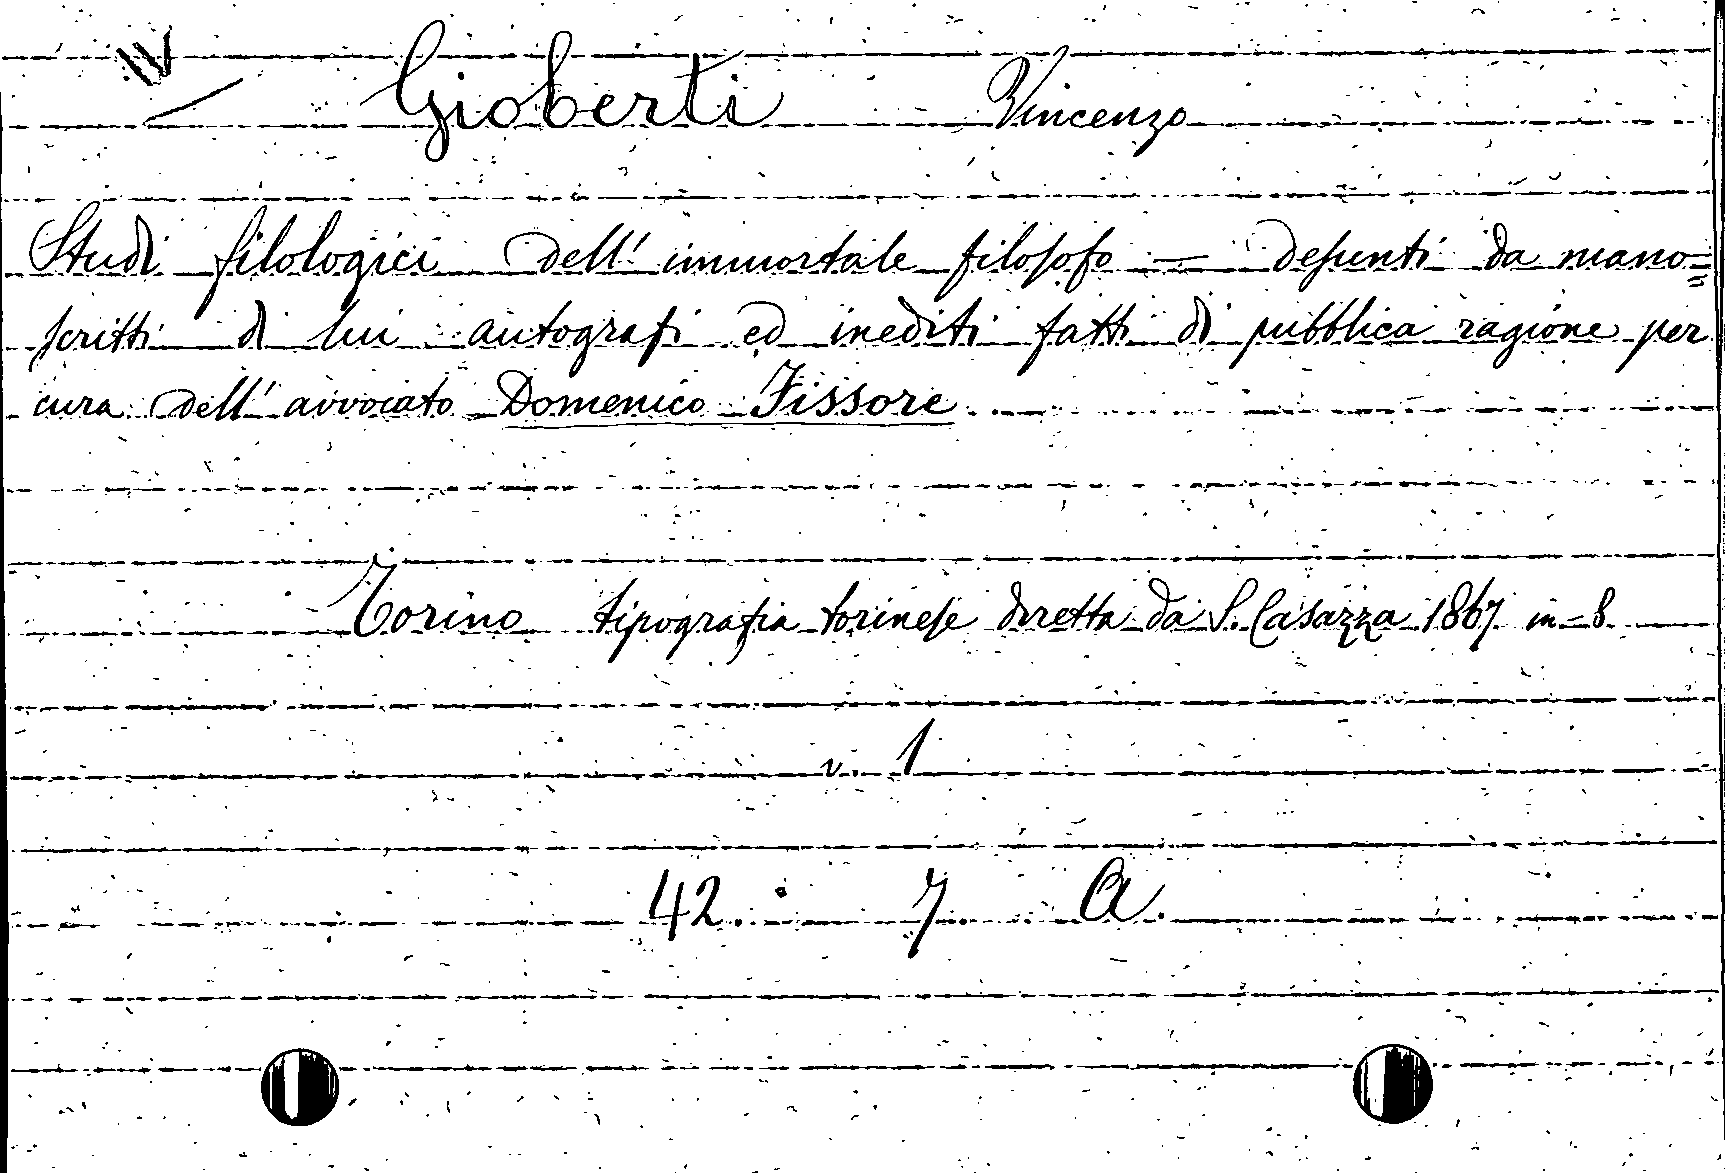 IV
Gioberti Vincenzo
Studi filologici dell' immortale filosofo — desunti da mano=
scritti di lui autografi ed inediti fatti di pubblica ragione per
cura dell' avvocato Domenico Fissore.
Torino tipografia torinese diretta da S. Casazza 1867 in-8
v. 1
42. 7. A.